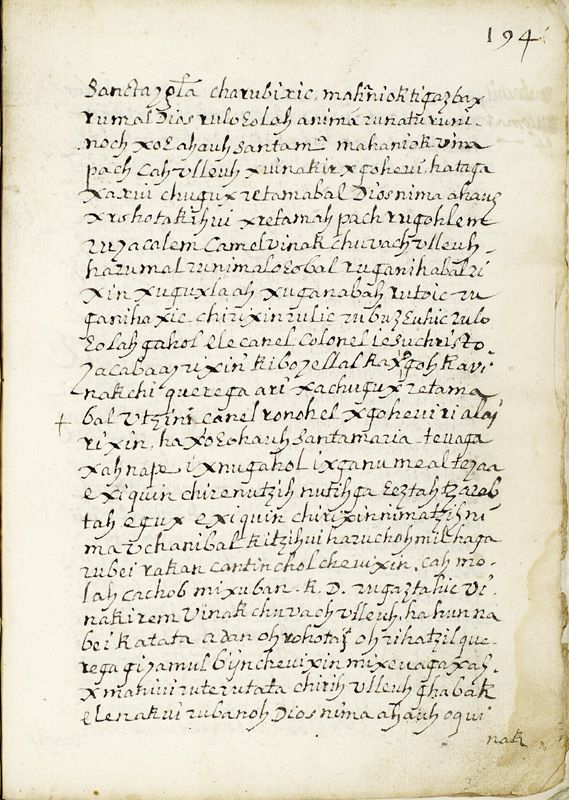 194
Sancta ygła charubixic, mahñiok tigaztax
rumal Dios ruloεolah anima runaturuni
noch xoεahauh Santam.ª mahaniok vina
pach Cah vlleuh xuinakirxgoheui, hataga
xaxui chugux retamabal Dios nima ahauz
xrshotakihui xretamah pach rugohlem
ruyacalem Camel vinak chuvach vlleuh
harumal runimaloεobal ruganihabal ri
xin xuguxlaah xuganabah rutoic ru
ganihaxic chirixin rulic rubuzεuhic rulo
εolah gahol elecanel Colonel iesuchristo
yacabaayrixin kiboyellal kaxgoh kavi
nakchi querega ari xachugux retama
+ bal Vtzini canel ronohel xgoheui ri alaj
rixin, haxoεohauh Santamaria tevaga
xahnape ixnugahol ixganumeal teyaa
exiquin chirenutzih nutihga
tah egux exiquin chirixin nimatzih ni
mavchanibal kitzihui haruchohmilhaga
rubei rakan cantincholcheuixin, cah mo
lah cachob mixuban. k. D. rugaztahic Vi
nakirem Vinak chuvach vlleuh, hahunna
bei katata adan oh rohotaj oh rihatzil que
regagiyamul biyncheuixin mixeuagaxah,
xmahiui ruterutata chirih vlleuh ghabak
elenakui rubanoh Dios nima ahauh oqui
nak